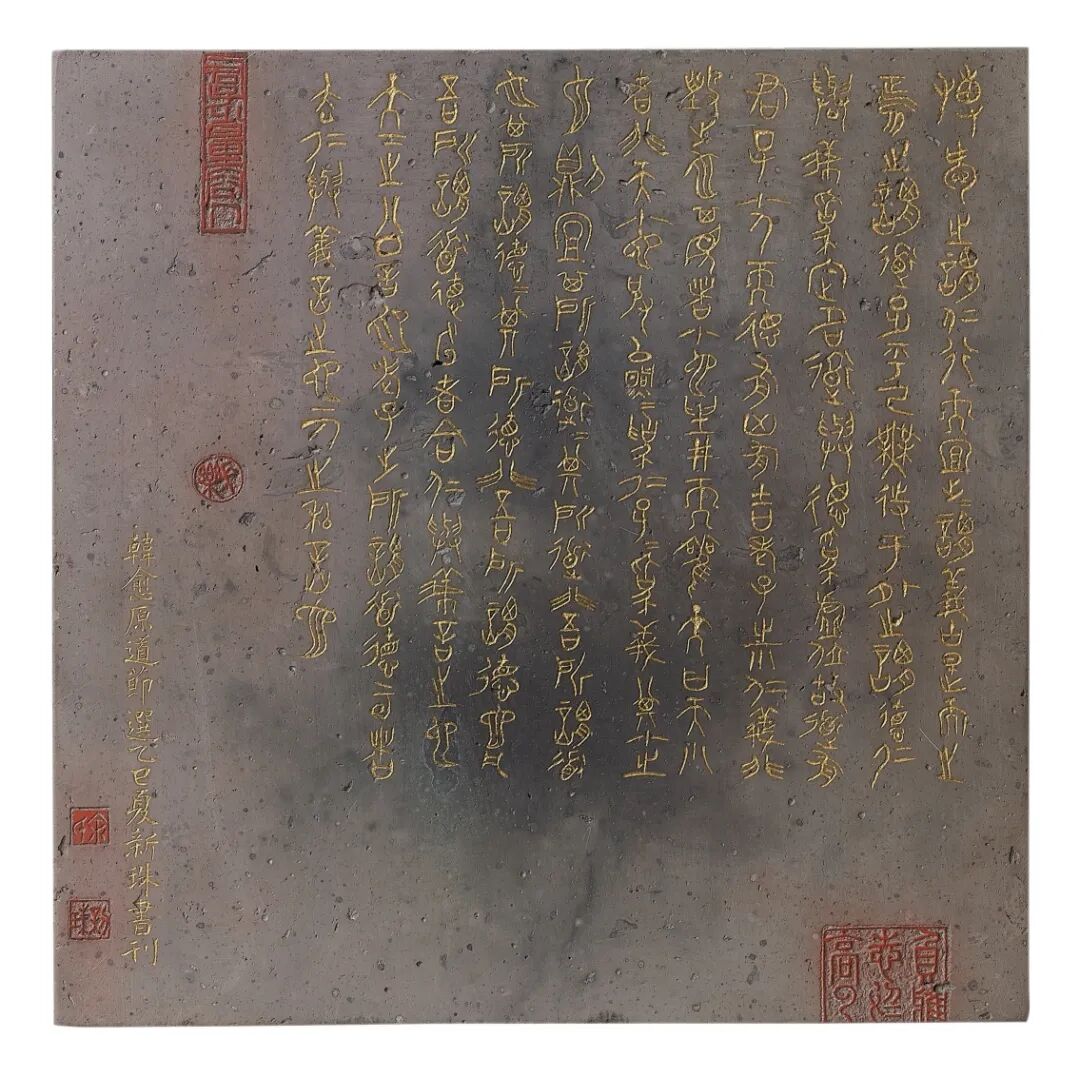 博愛之謂仁行而宜之之謂義由是而之
焉之謂道足乎己無待于外之謂德仁
與義為定名道與德為虛位故道有
君子小人而德有凶有吉老子之小仁義非
毀之也其見者小也坐井而觀天曰天小
者非天小也彼以煦=為仁孑=為義其小之
也則宜其所謂道=其所道非吾所謂道
也其所謂德=其所德非吾所謂德也凡
吾所謂道德云者合仁與義言之也
天下之公言也老子之所謂道德云者
去仁與義言之也一人之私言也
韓愈原道節選乙巳夏新珠書刊